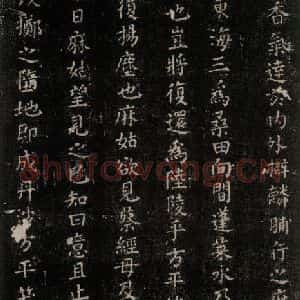 香氣達於內外擗麟脯行之
東海三爲桑田向間蓬萊水
也豈將復還爲陸陵乎方平
復揚塵也麻姑欲見蔡經母及
日麻姑望見之已知曰噫且止
擲之墮地即成丹沙方平笑
Shufawang.CN